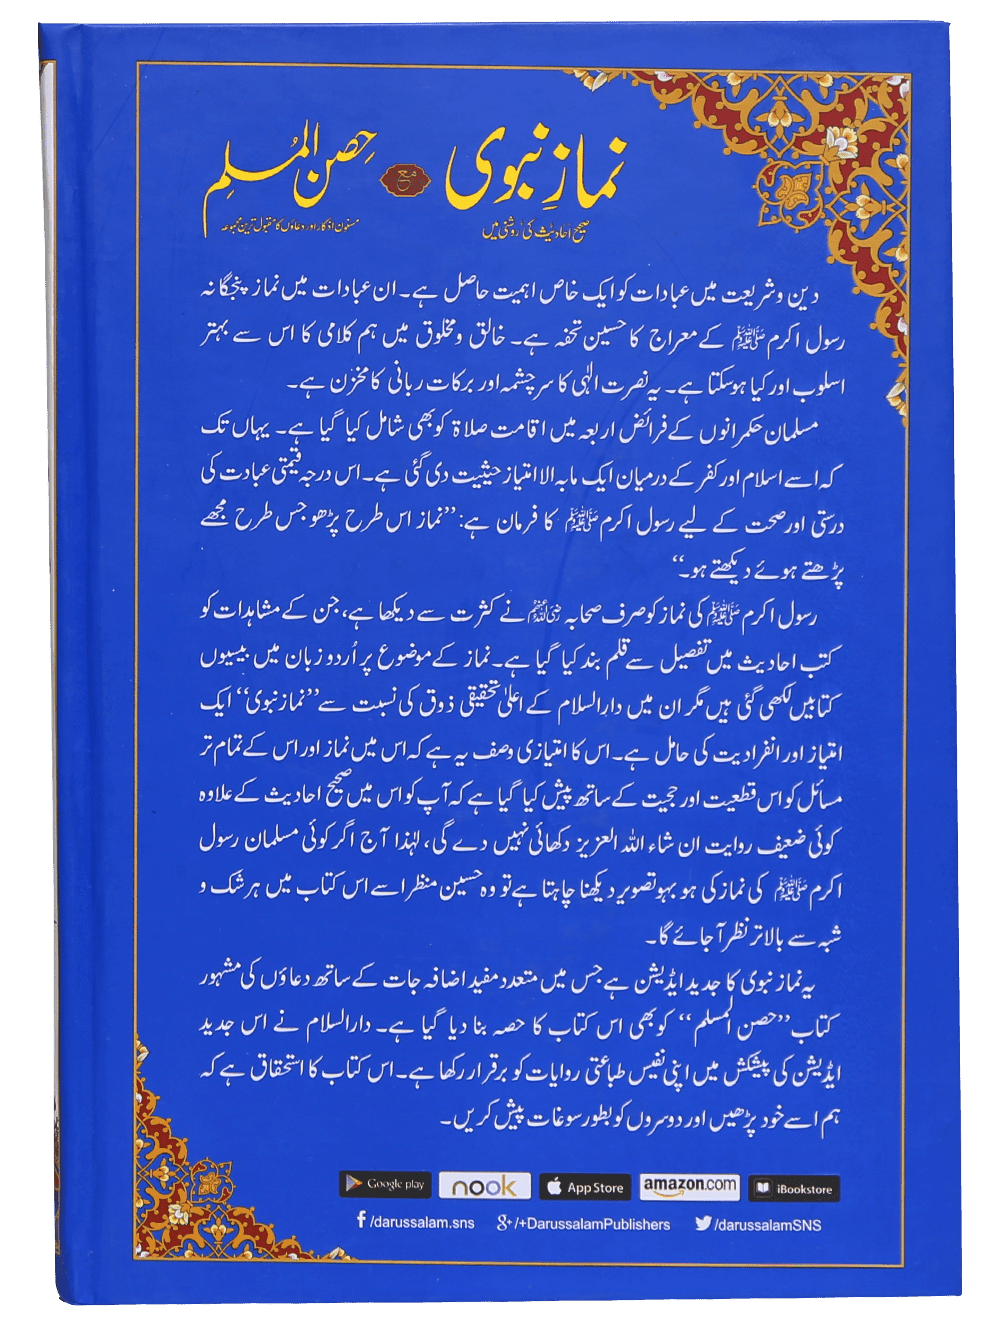 نمازِ نبوی مع حِصن المُسلِم
صحیح احادیث کی روشنی میں
مسنون اذکار اور دعاؤں کا مقبول ترین مجموعہ
دین و شریعت میں عبادات کو ایک خاص اہمیت حاصل ہے۔ ان عبادات میں نماز پنجگانہ
رسول اکرم ﷺ کے معراج کا حسین تحفہ ہے۔ خالق و مخلوق میں ہم کلامی کا اس سے بہتر
اسلوب اور کیا ہوسکتا ہے۔ یہ نصرت الٰہی کا سرچشمہ اور برکات ربانی کا مخزن ہے۔
مسلمان حکمرانوں کے فرائض اربعہ میں اقامت صلاۃ کو بھی شامل کیا گیا ہے۔ یہاں تک
کہ اسے اسلام اور کفر کے درمیان ایک مابہ الامتیاز حیثیت دی گئی ہے۔ اس درجہ قیمتی عبادت کی
درستی اور صحت کے لیے رسول اکرم ﷺ کا فرمان ہے: ’’نماز اس طرح پڑھو جس طرح مجھے
پڑھتے ہوئے دیکھتے ہو۔‘‘
رسول اکرم ﷺ کی نماز کو صرف صحابہ رضی اللہ عنہم نے کثرت سے دیکھا ہے، جن کے مشاہدات کو
کتب احادیث میں تفصیل سے قلم بند کیا گیا ہے۔ نماز کے موضوع پر اُردو زبان میں بیسیوں
کتابیں لکھی گئی ہیں مگر ان میں دارالسلام کے اعلیٰ تحقیقی ذوق کی نسبت سے ’’نماز نبوی‘‘ ایک
امتیاز اور انفرادیت کی حامل ہے۔ اس کا امتیازی وصف یہ ہے کہ اس میں نماز اور اس کے تمام تر
مسائل کو اس قطعیت اور حجیت کے ساتھ پیش کیا گیا ہے کہ آپ کو اس میں صحیح احادیث کے علاوہ
کوئی ضعیف روایت ان شاء اللہ العزیز دکھائی نہیں دے گی، لہٰذا آج اگر کوئی مسلمان رسول
اکرم ﷺ کی نماز کی ہو بہو تصویر دیکھنا چاہتا ہے تو وہ حسین منظر اسے اس کتاب میں ہر شک و
شبہ سے بالاتر نظر آجائے گا۔
یہ نماز نبوی کا جدید ایڈیشن ہے جس میں متعدد مفید اضافہ جات کے ساتھ دعاؤں کی مشہور
کتاب ’’حصن المسلم‘‘ کو بھی اس کتاب کا حصہ بنا دیا گیا ہے۔ دارالسلام نے اس جدید
ایڈیشن کی پیشکش میں اپنی نفیس طباعتی روایات کو برقرار رکھا ہے۔ اس کتاب کا استحقاق ہے کہ
ہم اسے خود پڑھیں اور دوسروں کو بطور سوغات پیش کریں۔
Google play nook App Store amazon.com iBookstore
f /darussalam.sns g+/+DarussalamPublishers /darussalamSNS